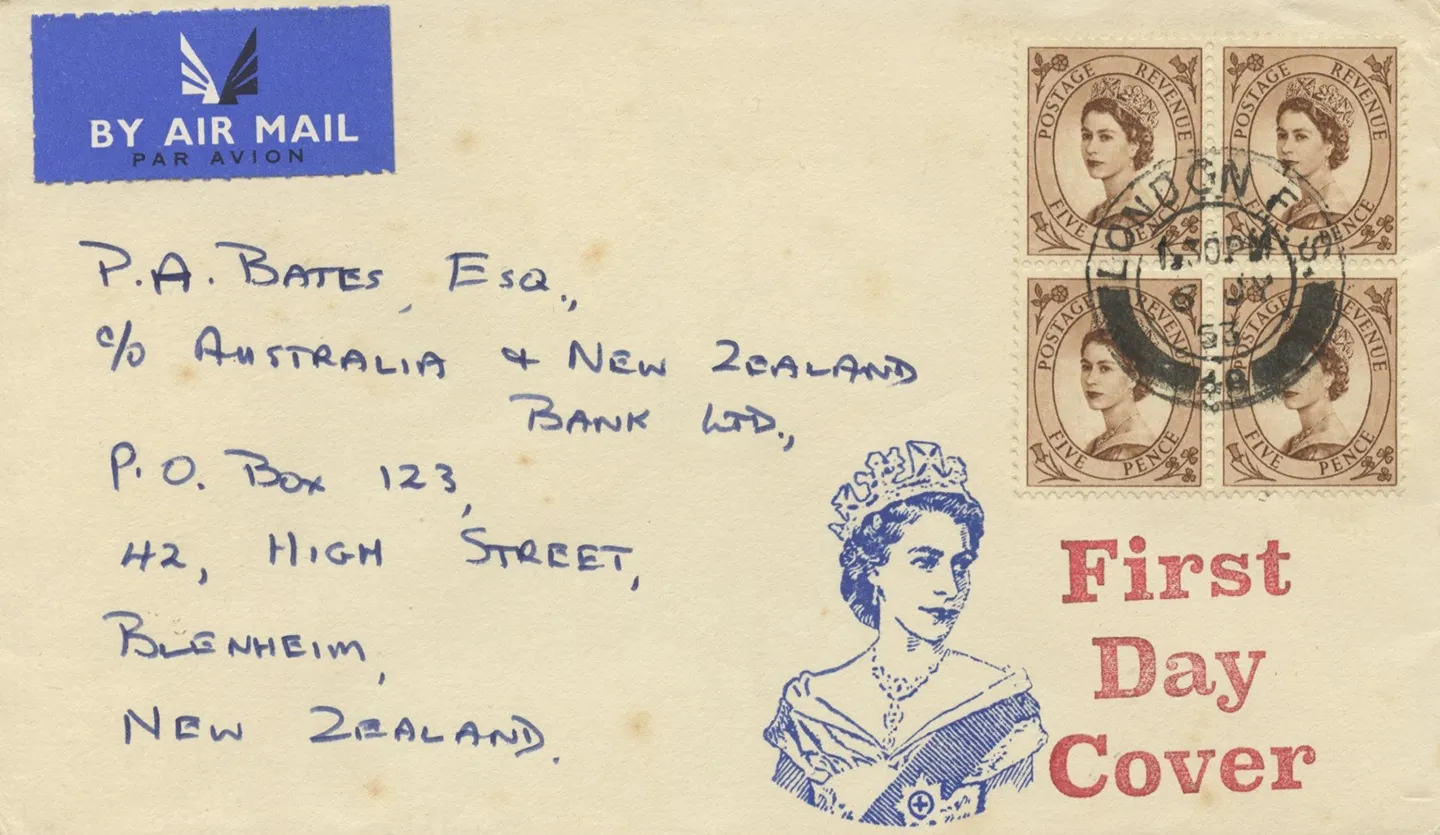 BY AIR MAIL
PAR AVION
P.A. BATES, ESQ.,
c/o AUSTRALIA & NEW ZEALAND
BANK LTD.,
P.O. BOX 123,
42, HIGH STREET,
BLENHEIM,
NEW ZEALAND.
POSTAGE REVENUE
FIVE PENCE
POSTAGE REVENUE
FIVE PENCE
POSTAGE REVENUE
FIVE PENCE
POSTAGE REVENUE
FIVE PENCE
LONDON F.S.
1.30PM
6 JY
53
48
First
Day
Cover